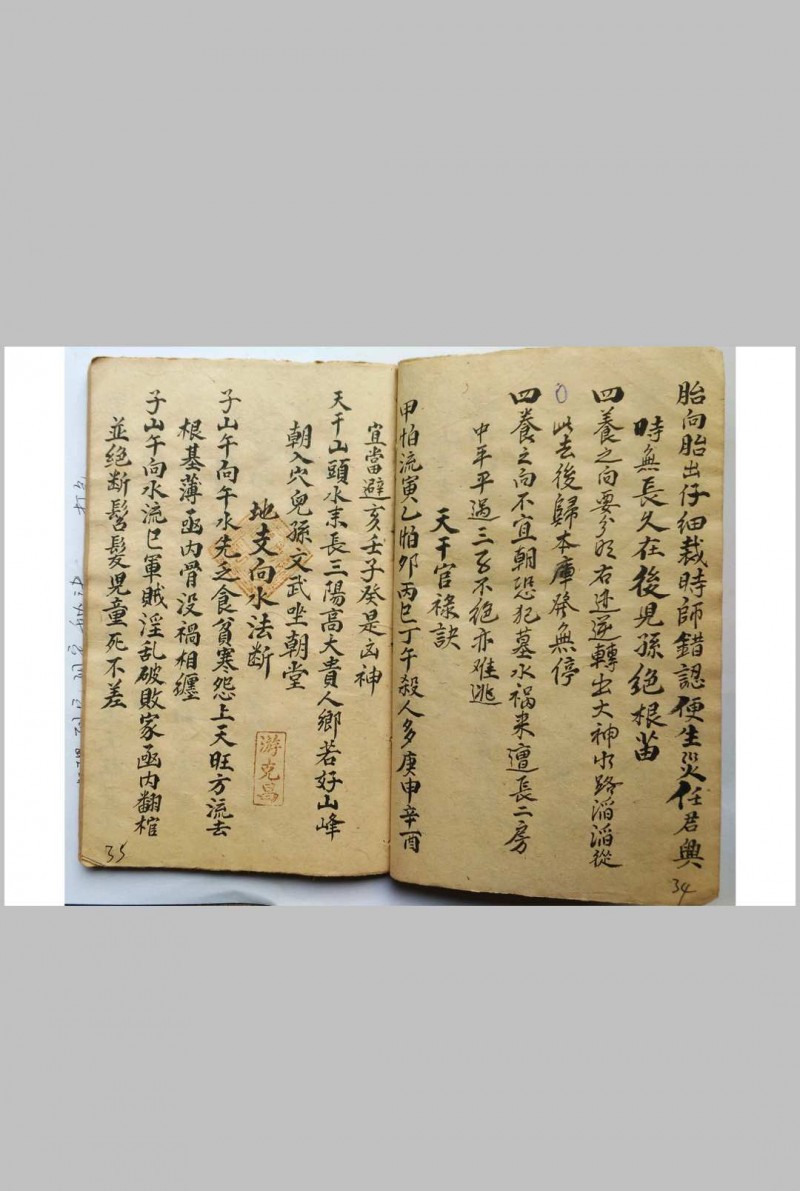 胎向胎出仔細裁時師錯認便生災任君興
時無長久在後児孫絶根苗
四養之向要分明右边逆轉出大神水路滔滔從
此去後歸本庫發無停
四養之向不宜朝恐犯墓水禍来遭長二房
中平平過三子不絶亦难逃
天干官祿訣
甲怕流寅乙怕夘丙巳丁午殺人多庚申辛酉
34
宜當避亥壬子癸是凶神
天干山頭水来長三陽高大貴人鄉若好山峰
朝入穴兒孫文武坐朝堂
地支向水法断
子山午向午水先乏食貧寒怨上天旺方流去
根基薄凾内骨没禍相纏
子山午向水流巳軍賊淫乱破敗家凾内翻棺
並绝断髩髮児童死不差
游克昌
35